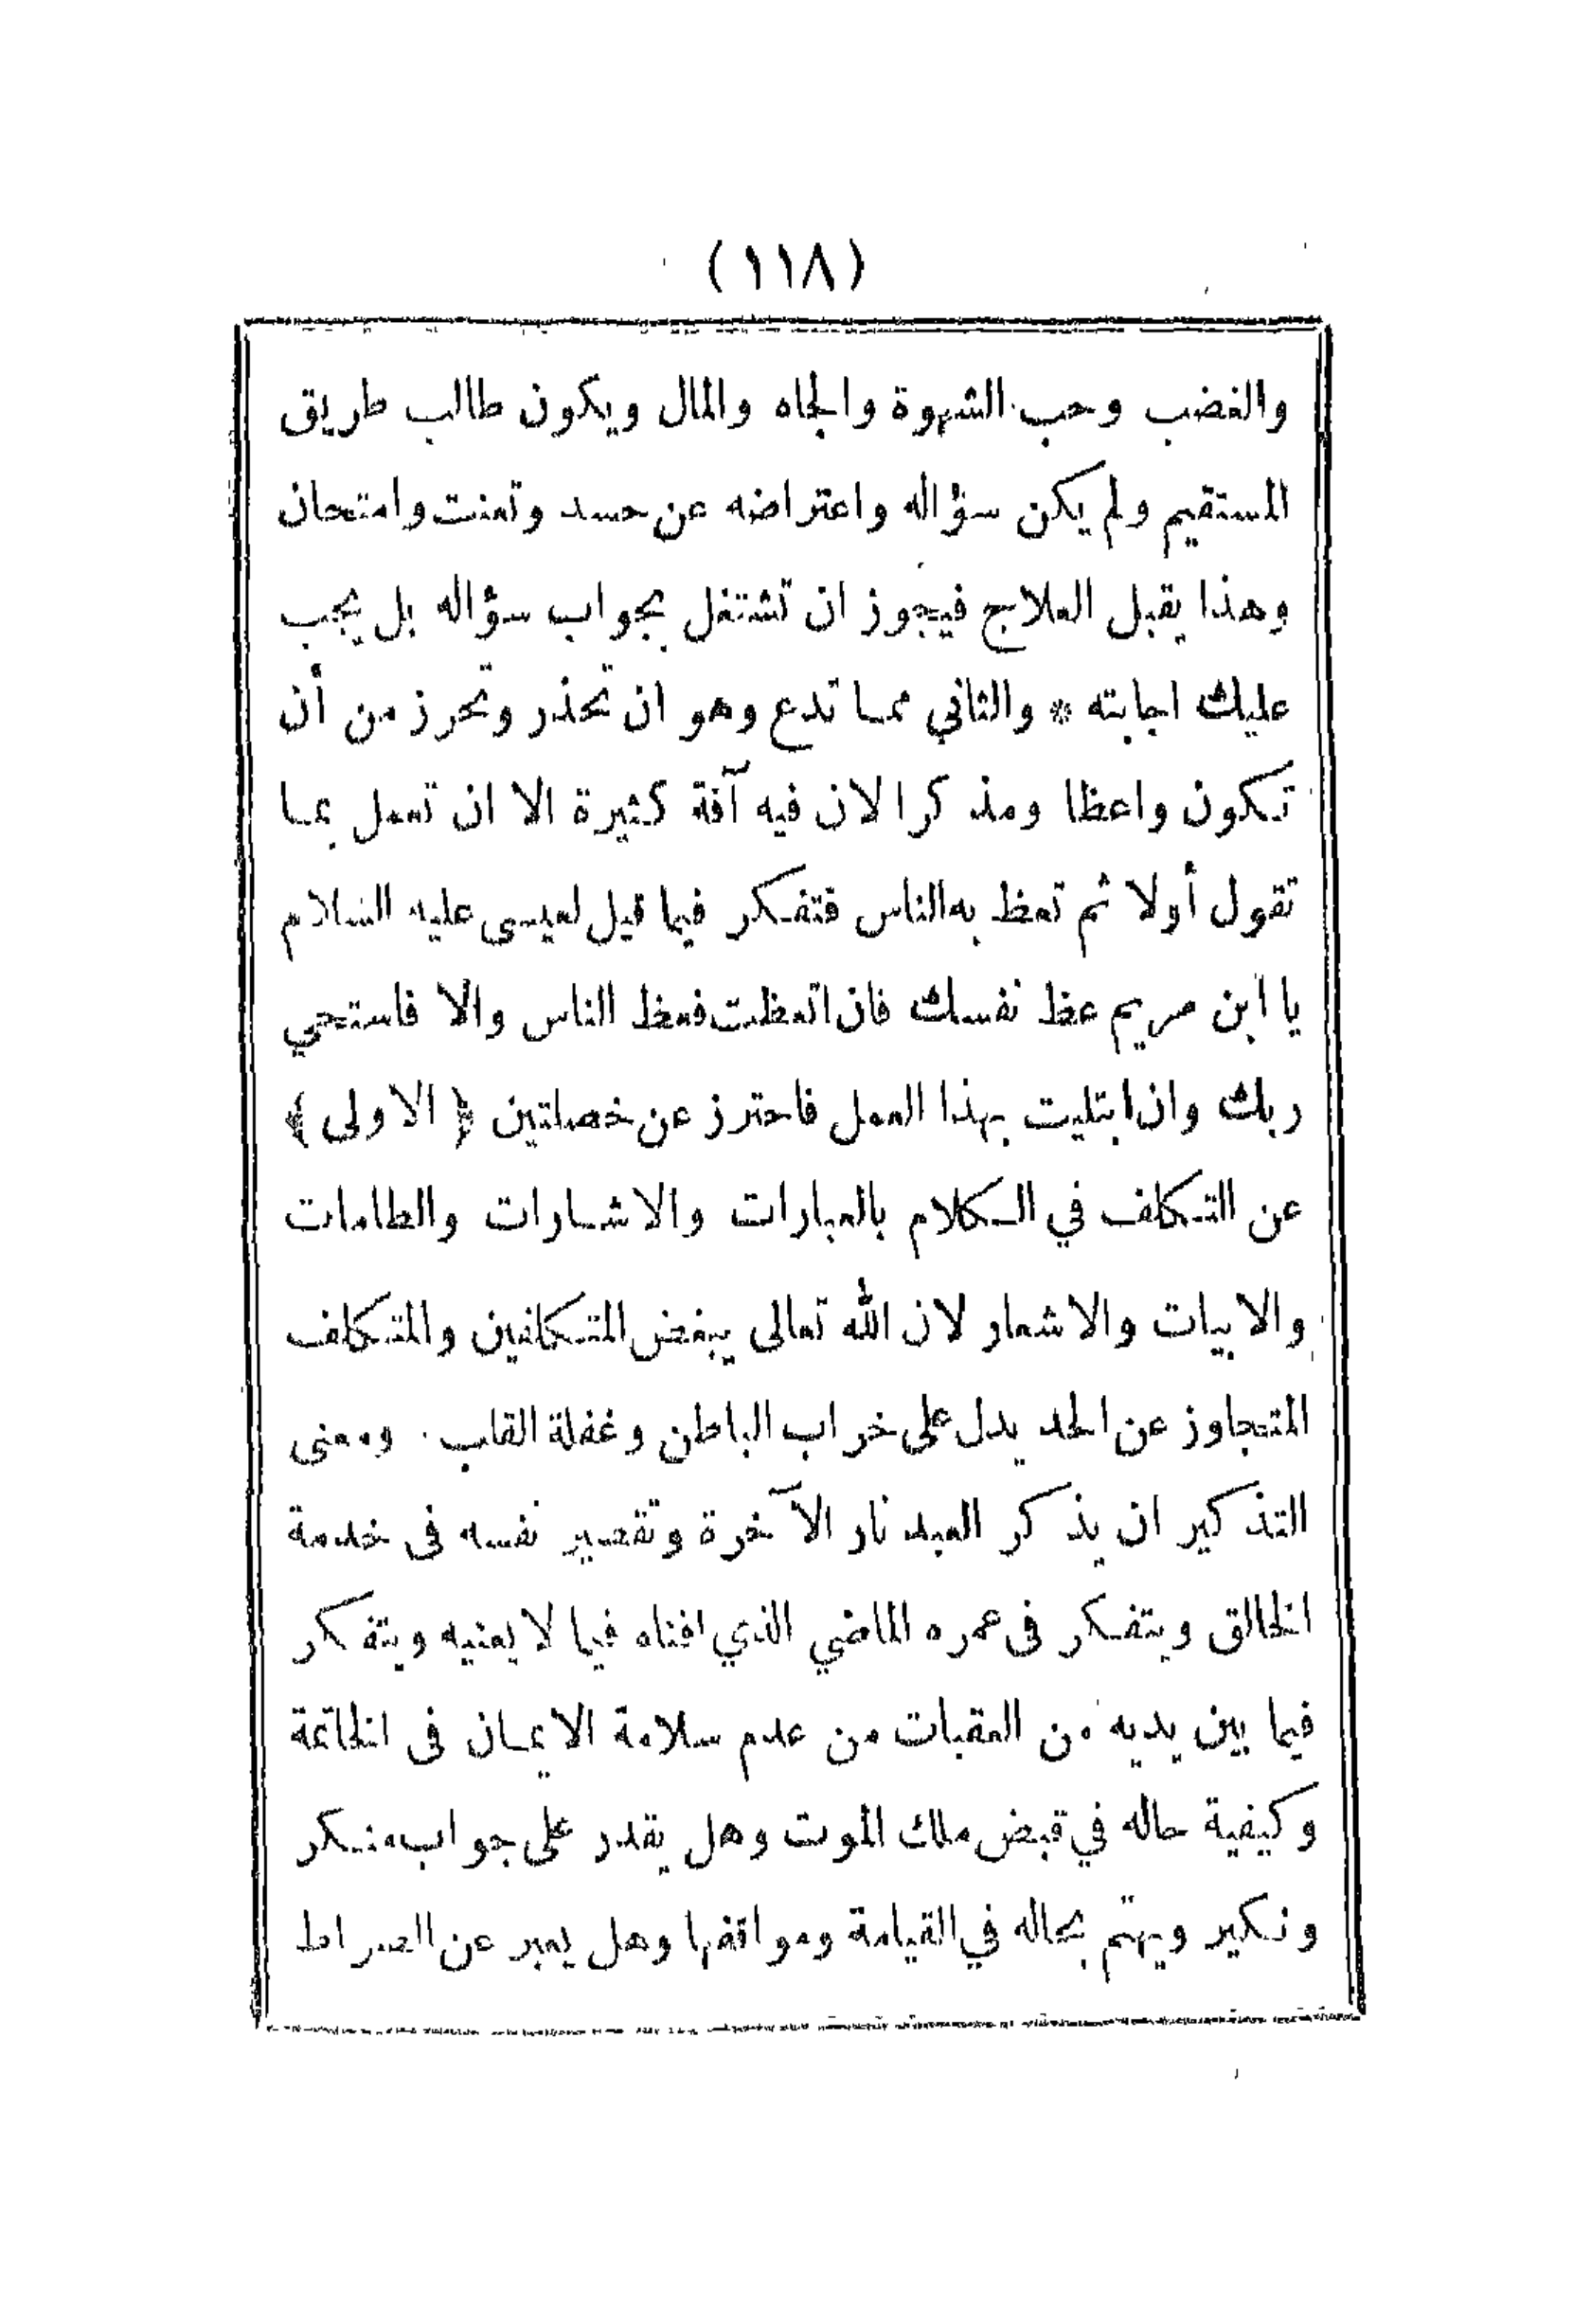 (١١٨)
والغضب وحب الشهوة والجاه والمال ويكون طالب طريق
المستقيم ولم يكن سؤاله واعتراضه عن حسد وتعنت وامتحان
وهذا يقبل العلاج فيجوز ان تشتغل بجواب سؤاله بل يجب
عليك اجابته * والثاني مما تدع وهو ان تحذر وتحرز من أن
تكون واعظا ومذكرا لان فيه آفة كثيرة الا ان تعمل بما
تقول أولا ثم تعظ به الناس فتفكر فيما قيل لعيسى عليه السلام
يا ابن مريم عظ نفسك فان اتعظت فعظ الناس والا فاستحي
ربك وان ابتليت بهذا العمل فاحترز عن خصلتين ﴿ الاولى ﴾
عن التكلف في الكلام بالعبارات والاشارات والطامات
والابيات والاشعار لان الله تعالى يبغض المتكلفين والمتكلف
المتجاوز عن الحد يدل على خراب الباطن وغفلة القلب . ومعنى
التذكير ان يذكر العبد نار الآخرة وتقصير نفسه فى خدمة
الخالق ويتفكر فى عمره الماضي الذي افناه فيما لا يعنيه ويتفكر
فيما بين يديه من العقبات من عدم سلامة الايمان فى الخاتمة
وكيفية حاله في قبض ملك الموت وهل يقدر على جواب منكر
ونكير ويهتم بحاله في القيامة ومواقفها وهل يعبر عن الصراط